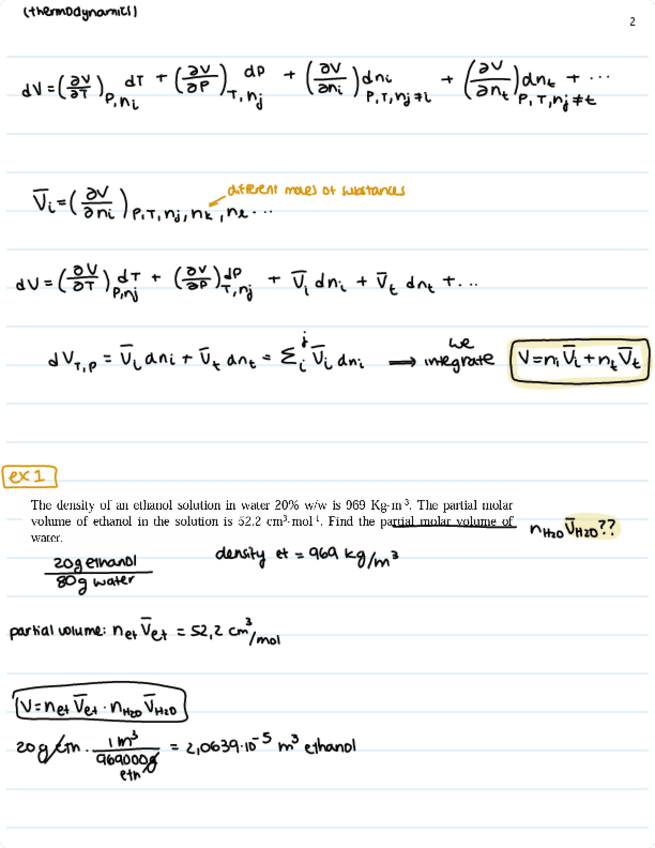 (thermodynamics)
2
dV = (∂V/∂T)P,ni dT + (∂V/∂P)T,nj dP + (∂V/∂ni)P,T,nj≠i dni + (∂V/∂nt)P,T,nj≠t dnt + ...
different moles of substances
V̄i = (∂V/∂ni)P,T,nj,nk,nl...
dV = (∂V/∂T)P,nj dT + (∂V/∂P)T,nj dP + V̄i dni + V̄t dnt + ...
dVT,P = V̄i dni + V̄t dnt = Σi^j V̄i dni → we integrate V = niV̄i + ntV̄t
ex 1
The density of an ethanol solution in water 20% w/w is 969 Kg·m⁻³. The partial molar
volume of ethanol in the solution is 52.2 cm³·mol⁻¹. Find the partial molar volume of
water.
nH2O V̄H2O??
20g ethanol / 80g water
density et = 969 kg/m³
partial volume: net V̄et = 52,2 cm³/mol
V = net V̄et · nH2O V̄H2O
20g etn · 1 m³ / 969000g etn = 2,0639·10⁻⁵ m³ ethanol